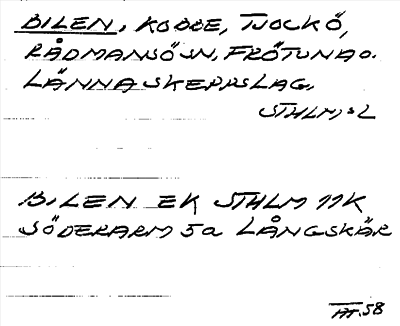 BILEN, KOBBE, TJOCKÖ,
RÅDMANSÖ SN, FRÖTUNA O.
LÄNNA SKEPPSLAG,
STHLM:S L
BILEN EK STHLM 11K
SÖDERARM 5a LÅNGSKÄR
HT.58